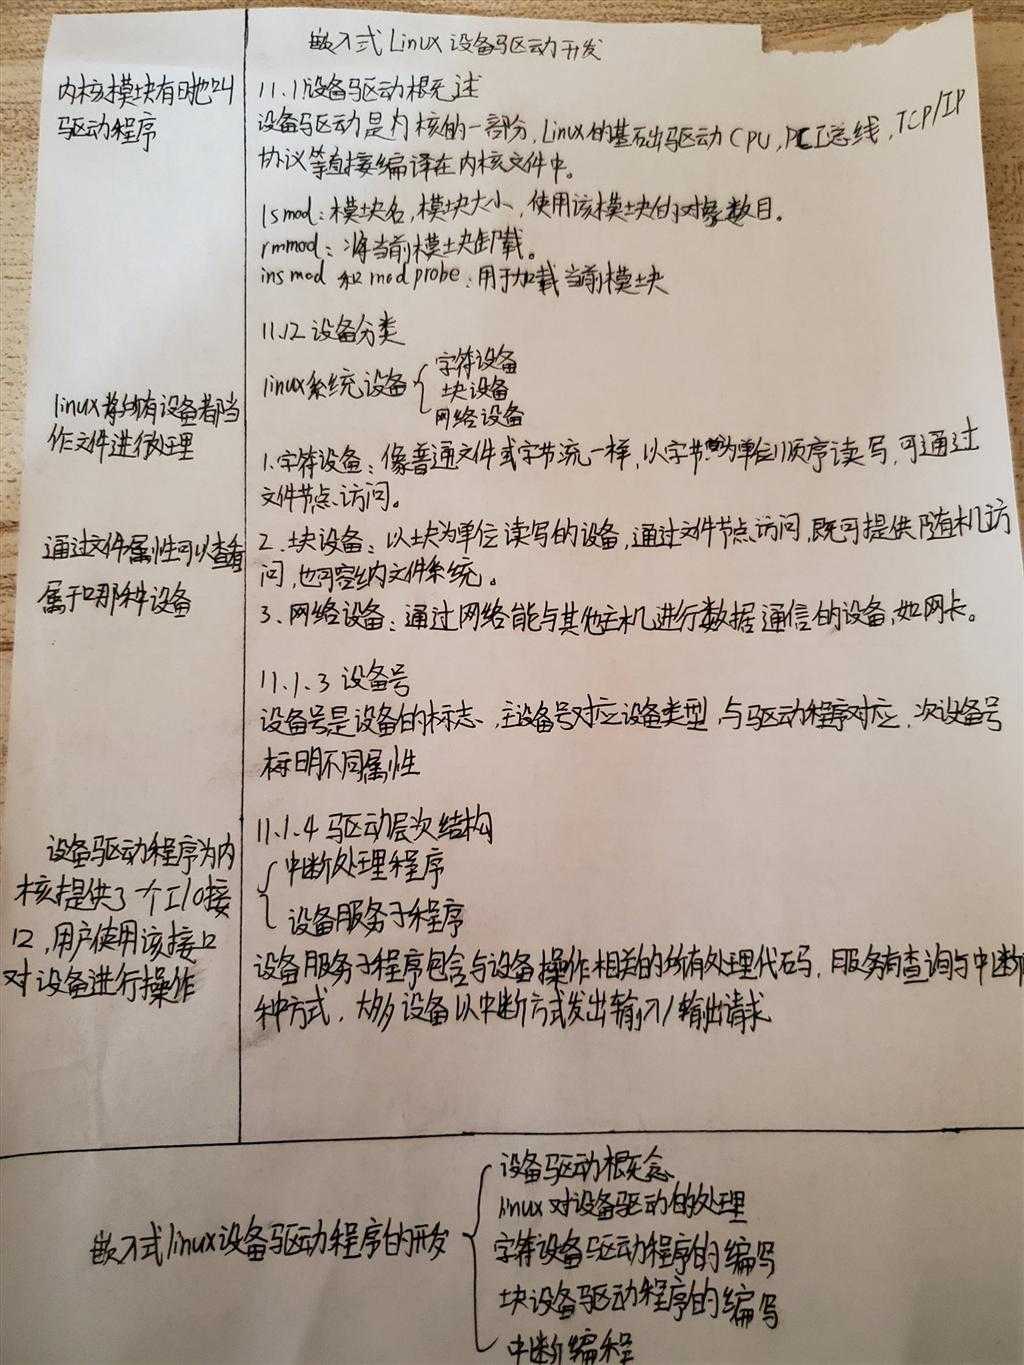 嵌入式Linux设备驱动开发
内核模块有时也叫
驱动程序
11.1设备驱动概述
设备驱动是内核的一部分,Linux的基础驱动CPU,PCI总线,TCP/IP
协议等直接编译在内核文件中。
lsmod:模块名,模块大小,使用该模块的对象数目。
rmmod:将当前模块卸载。
insmod 和modprobe:用于加载当前模块
11.12设备分类
linux系统设备
字符设备
块设备
网络设备
linux将所有设备都当
作文件进行处理
1.字符设备:像普通文件或字节流一样,以字节为单位顺序读写,可通过
文件节点访问。
通过文件属性可以查看
属于哪种设备
2.块设备:以块为单位读写的设备,通过文件节点访问,既可提供随机访
问,也可容纳文件系统。
3.网络设备:通过网络能与其他主机进行数据通信的设备,如网卡。
11.1.3 设备号
设备号是设备的标志,主设备号对应设备类型,与驱动程序对应,次设备号
标明不同属性
11.1.4 驱动层次结构
中断处理程序
设备服务子程序
设备驱动程序为内
核提供了一个I/O接
口,用户使用该接口
对设备进行操作
设备服务子程序包含与设备操作相关的所有处理代码,服务有查询与中断
种方式,大多设备以中断方式发出输入/输出请求
嵌入式linux设备驱动程序的开发
设备驱动概念
linux对设备驱动的处理
字符设备驱动程序的编写
块设备驱动程序的编写
中断编程